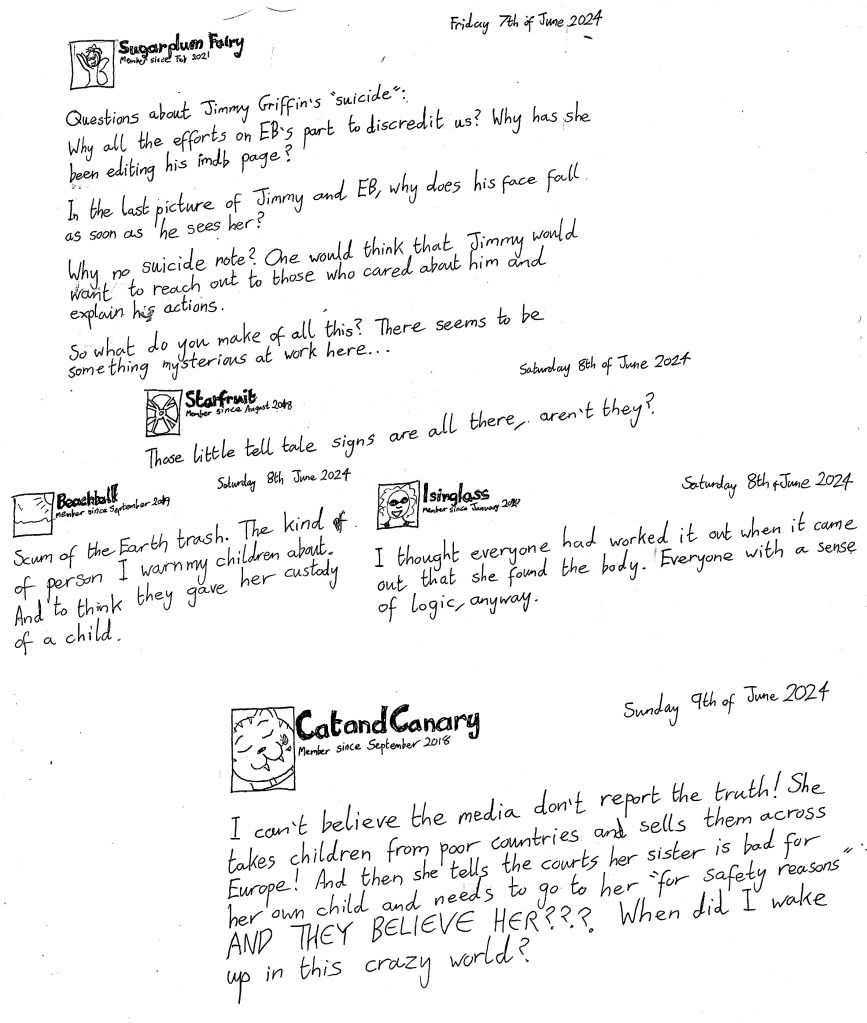 Friday 7th of June 2024
Sugarplum Fairy
Member since Feb 2021
Questions about Jimmy Griffin's "suicide":
Why all the efforts on EB's part to discredit us? Why has she
been editing his imdb page?
In the last picture of Jimmy and EB, why does his face fall
as soon as he sees her?
Why no suicide note? One would think that Jimmy would
want to reach out to those who cared about him and
explain his actions.
So what do you make of all this? There seems to be
something mysterious at work here...
Saturday 8th of June 2024
Starfruit
Member since August 2018
Those little tell tale signs are all there, aren't they?
Saturday 8th June 2024
Beachball
Member since September 2019
Scum of the Earth trash. The kind
of person I warn my children about.
And to think they gave her custody
of a child.
Saturday 8th of June 2024
Isinglass
Member since January
I thought everyone had worked it out when it came
out that she found the body. Everyone with a sense
of logic, anyway.
Sunday 9th of June 2024
CatandCanary
Member since September 2018
I can't believe the media don't report the truth! She
takes children from poor countries and sells them across
Europe! And then she tells the courts her sister is bad for
her own child and needs to go to her "for safety reasons"
AND THEY BELIEVE HER???. When did I wake
up in this crazy world?